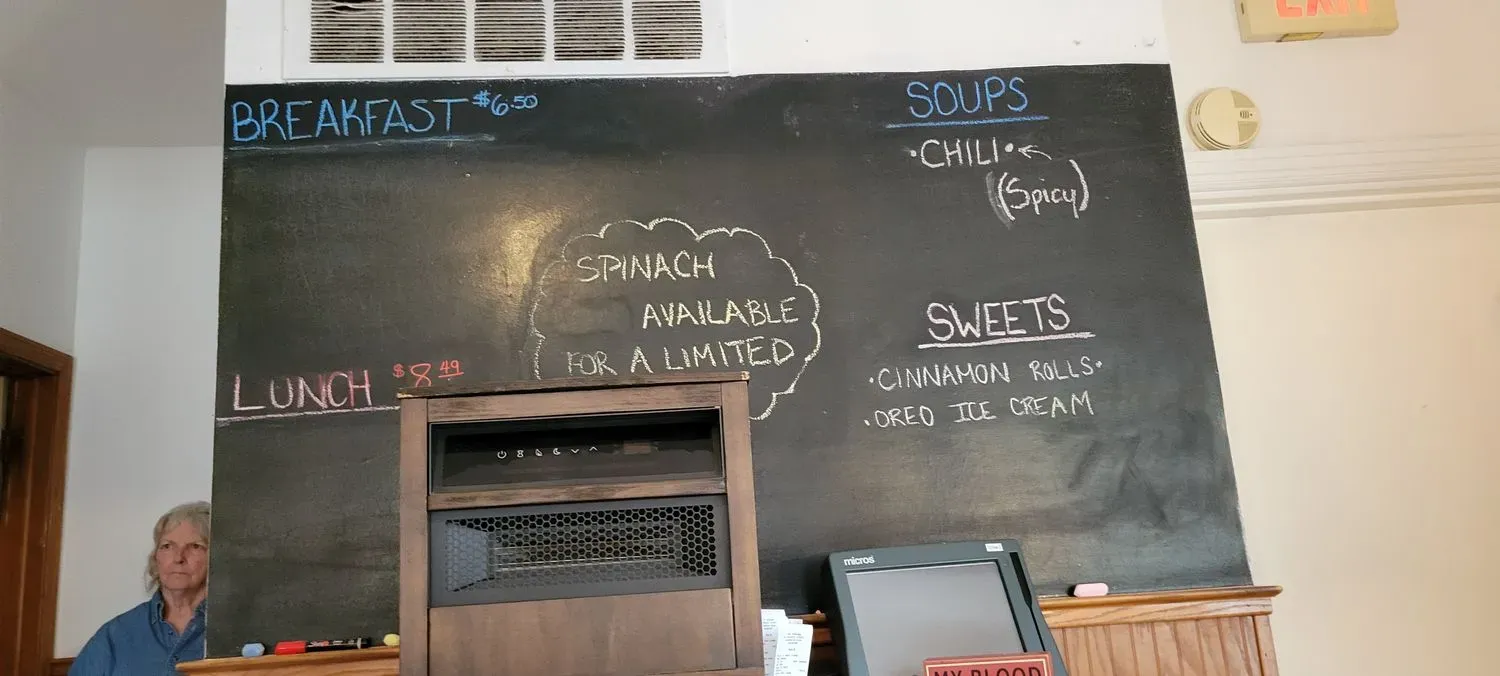 EXIT
BREAKFAST $6.50
SOUPS
•CHILI•
(Spicy)
SPINACH
AVAILABLE
FOR A LIMITED
SWEETS
•CINNAMON ROLLS•
•OREO ICE CREAM
LUNCH $8.49
micros
MY BLOOD